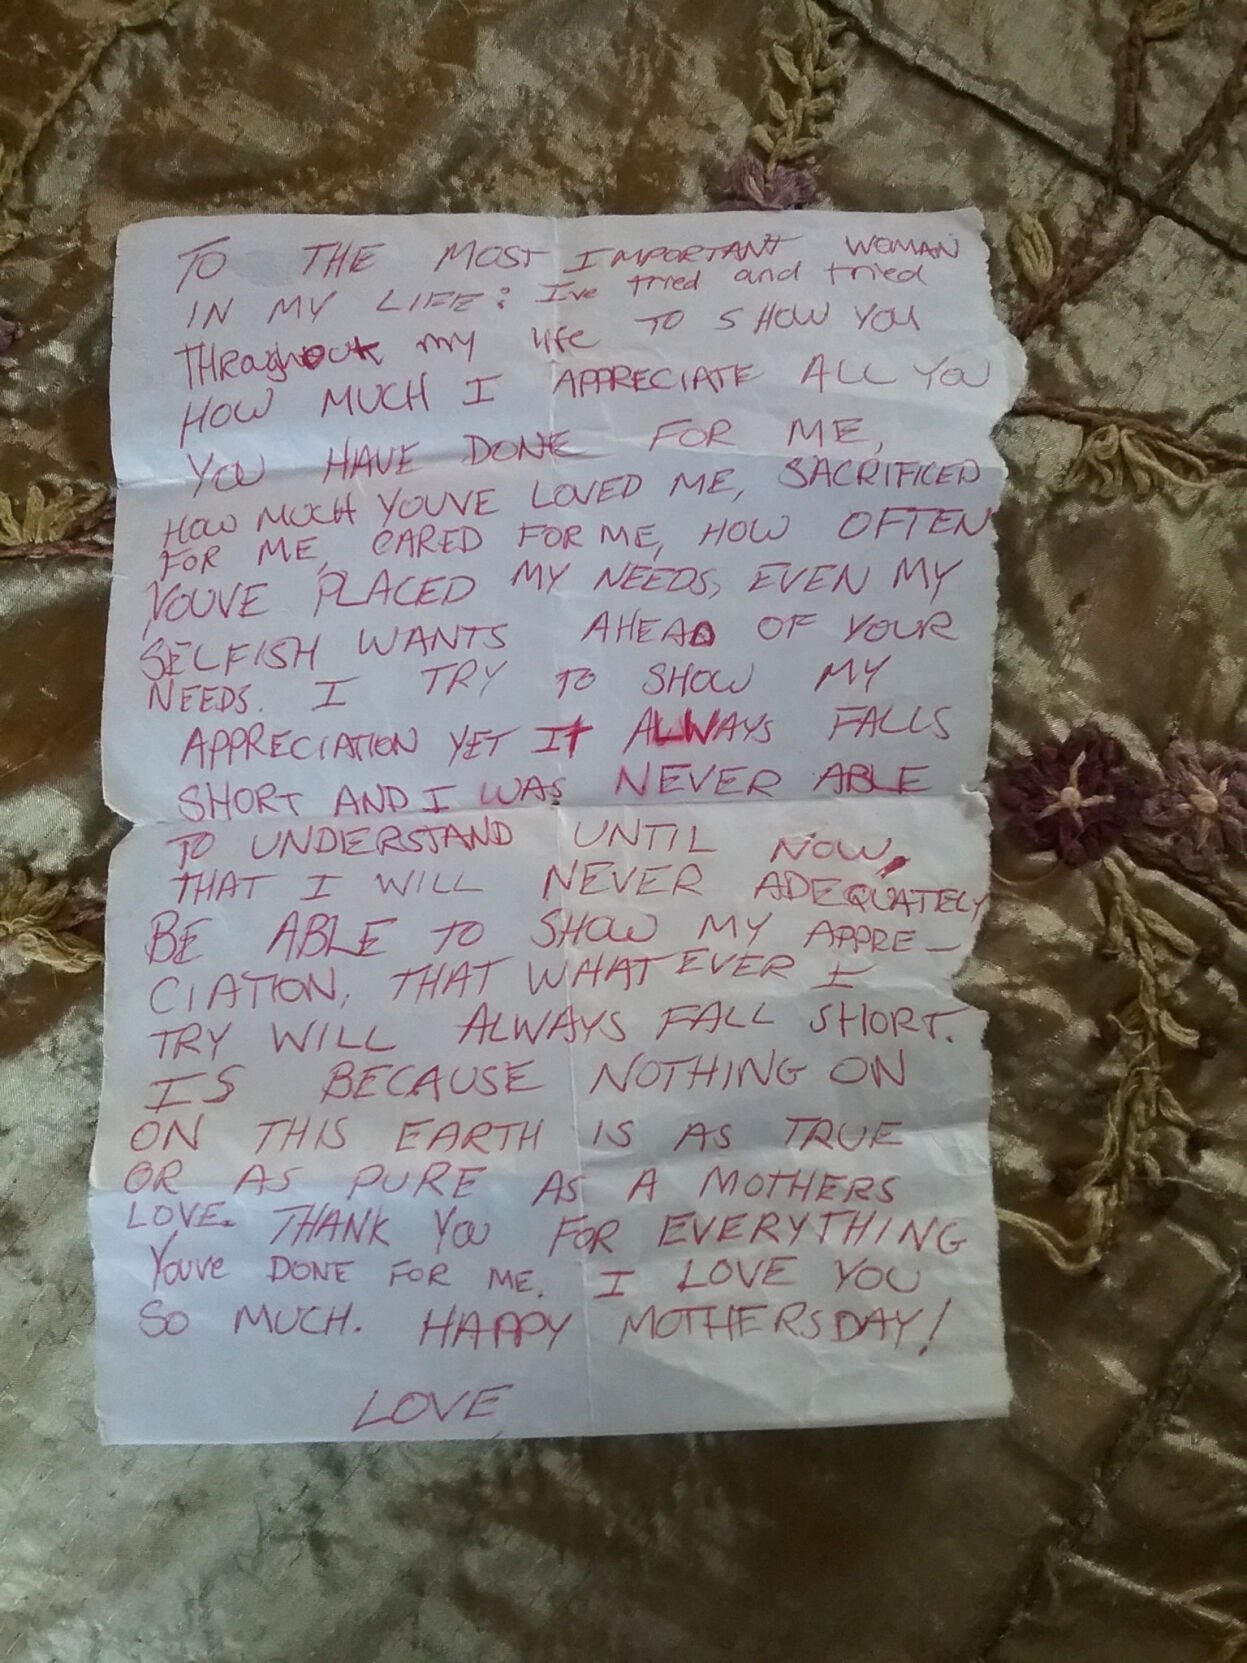 TO THE MOST IMPORTANT WOMAN
IN MY LIFE: I've tried and tried
THRoughout my life TO SHOW YOU
HOW MUCH I APPRECIATE ALL YOU
YOU HAVE DONE FOR ME,
HOW MUCH YOUVE LOVED ME, SACRIFICED
FOR ME, CARED FOR ME, HOW OFTEN
YOUVE PLACED MY NEEDS, EVEN MY
SELFISH WANTS AHEAD OF YOUR
NEEDS. I TRY TO SHOW MY
APPRECIATION YET IT ALWAYS FALLS
SHORT AND I WAS NEVER ABLE
TO UNDERSTAND UNTIL NOW,
THAT I WILL NEVER ADEQUATELY
BE ABLE TO SHOW MY APPRE-
CIATION, THAT WHATEVER I
TRY WILL ALWAYS FALL SHORT.
IS BECAUSE NOTHING ON
ON THIS EARTH IS AS TRUE
OR AS PURE AS A MOTHERS
LOVE. THANK YOU FOR EVERYTHING
YOUve DONE FOR ME. I LOVE YOU
SO MUCH. HAPPY MOTHERSDAY!
LOVE,